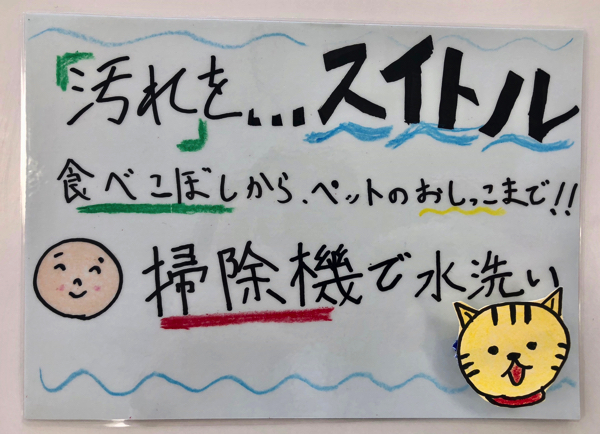 「汚れを」...スイトル
食べこぼしから、ペットのおしっこまで!!
掃除機で水洗い